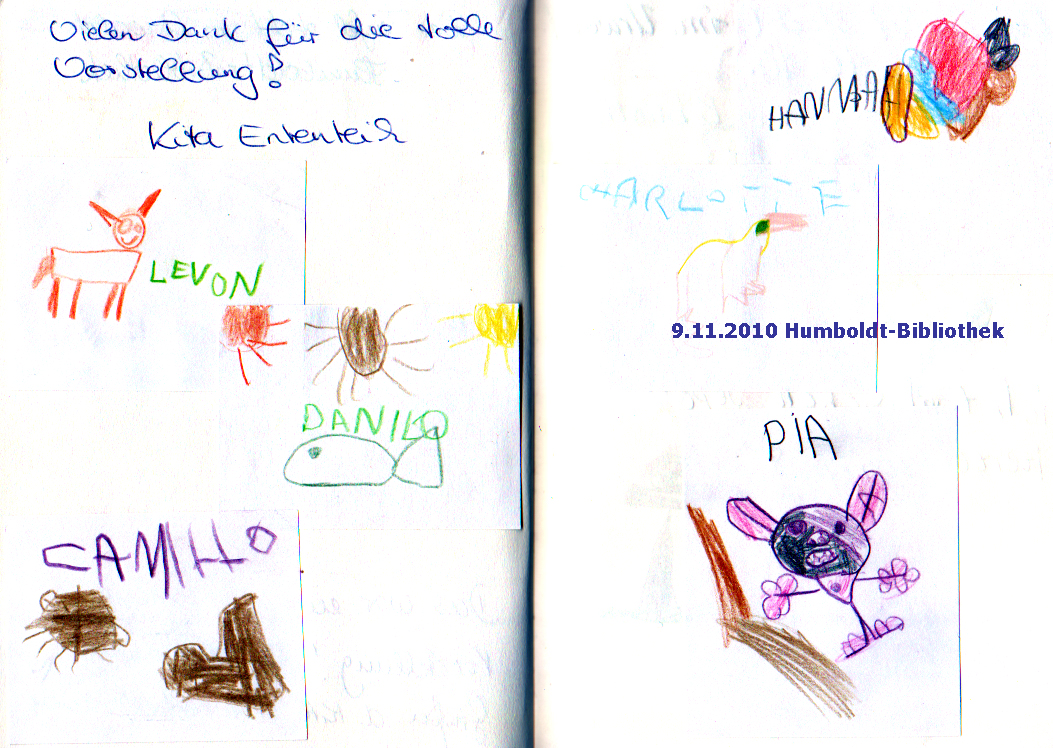 Vielen Dank für die tolle
Vorstellung!
Kita Ententeich
LEVON
DANILO
CAMILLO
HANNAH
CHARLOTTE
9.11.2010 Humboldt-Bibliothek
PIA